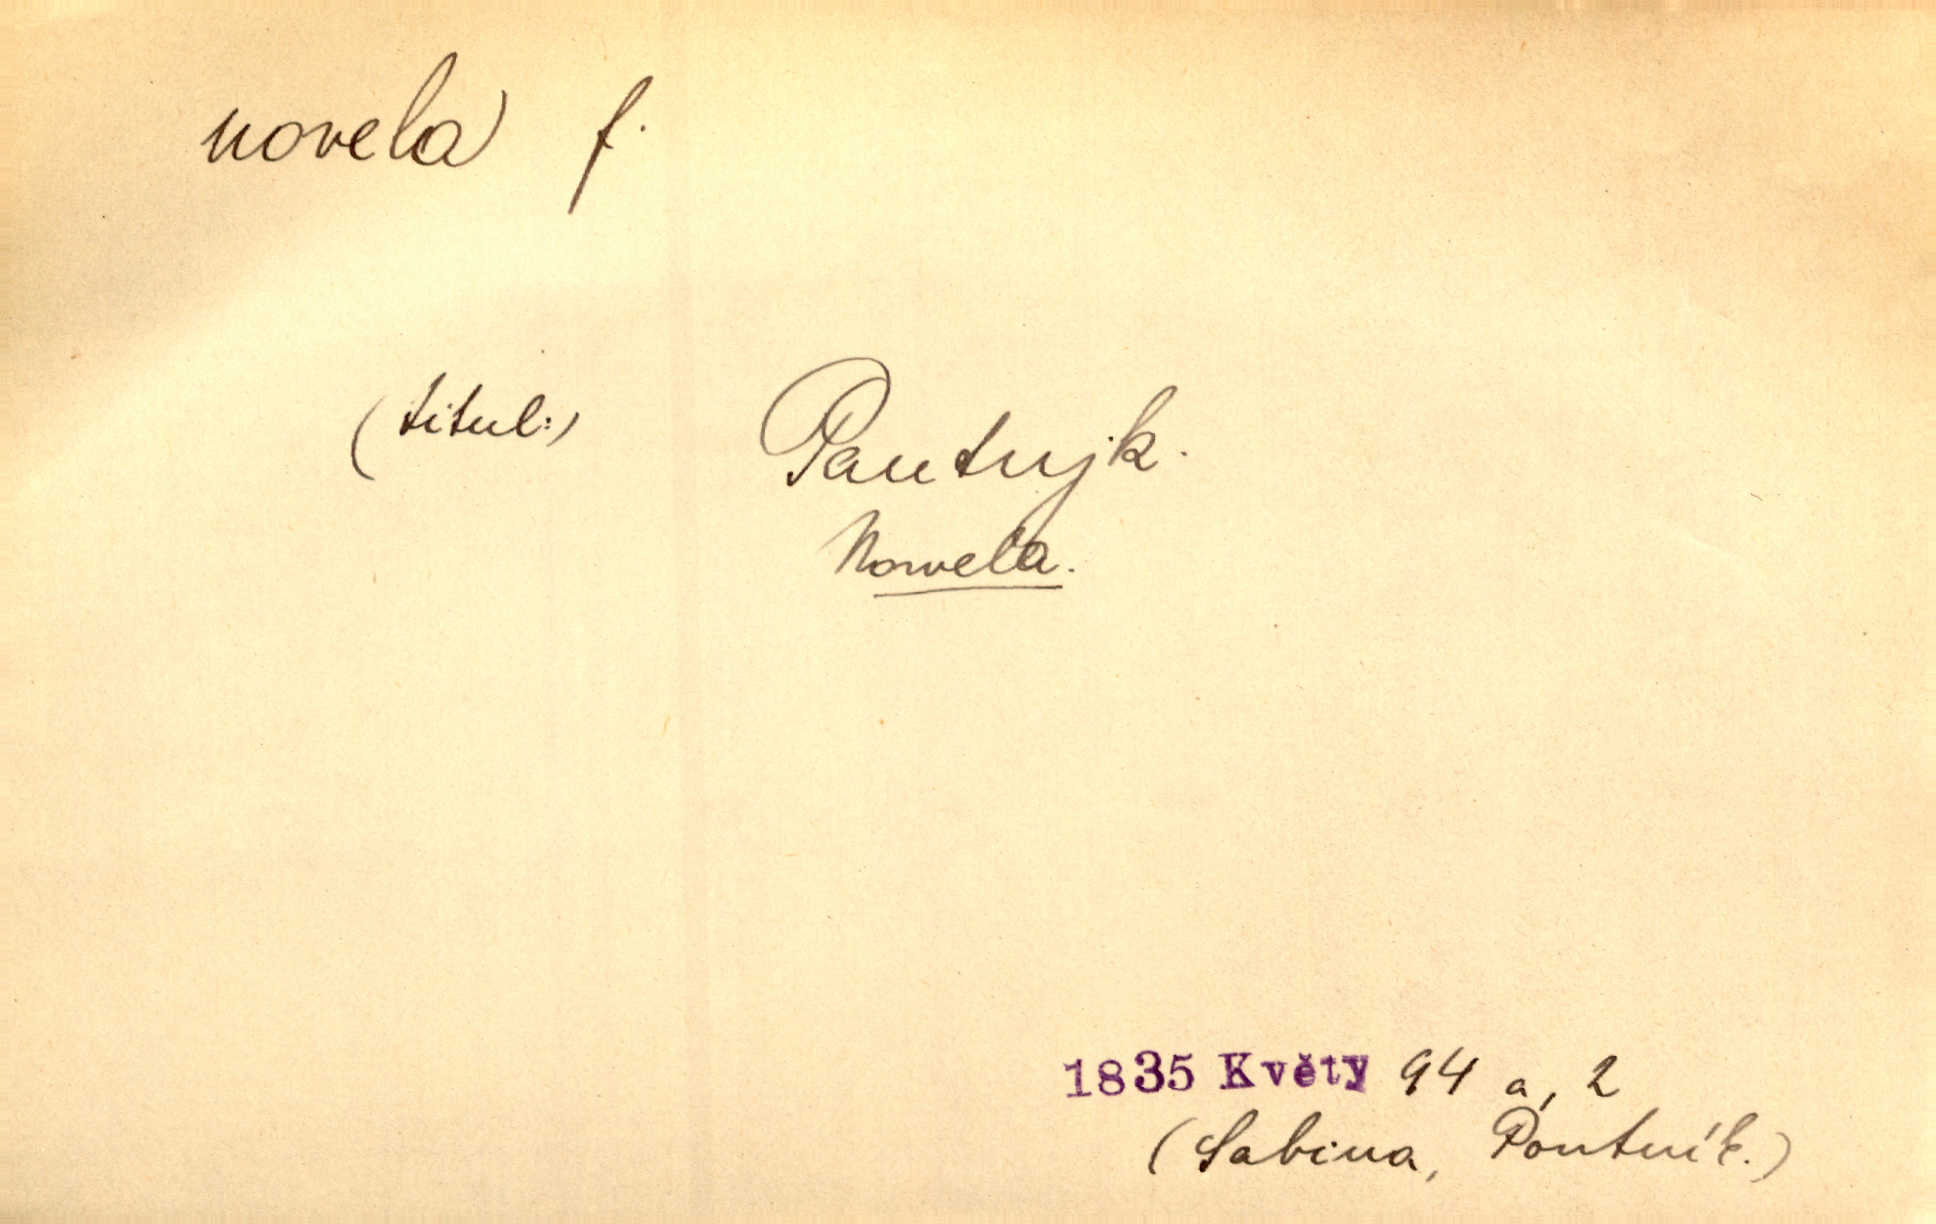 novela f.
(titul:) Pautnjk.
Nowela.
1835 Květy 94 a, 2
(Sabina, Poutník.)